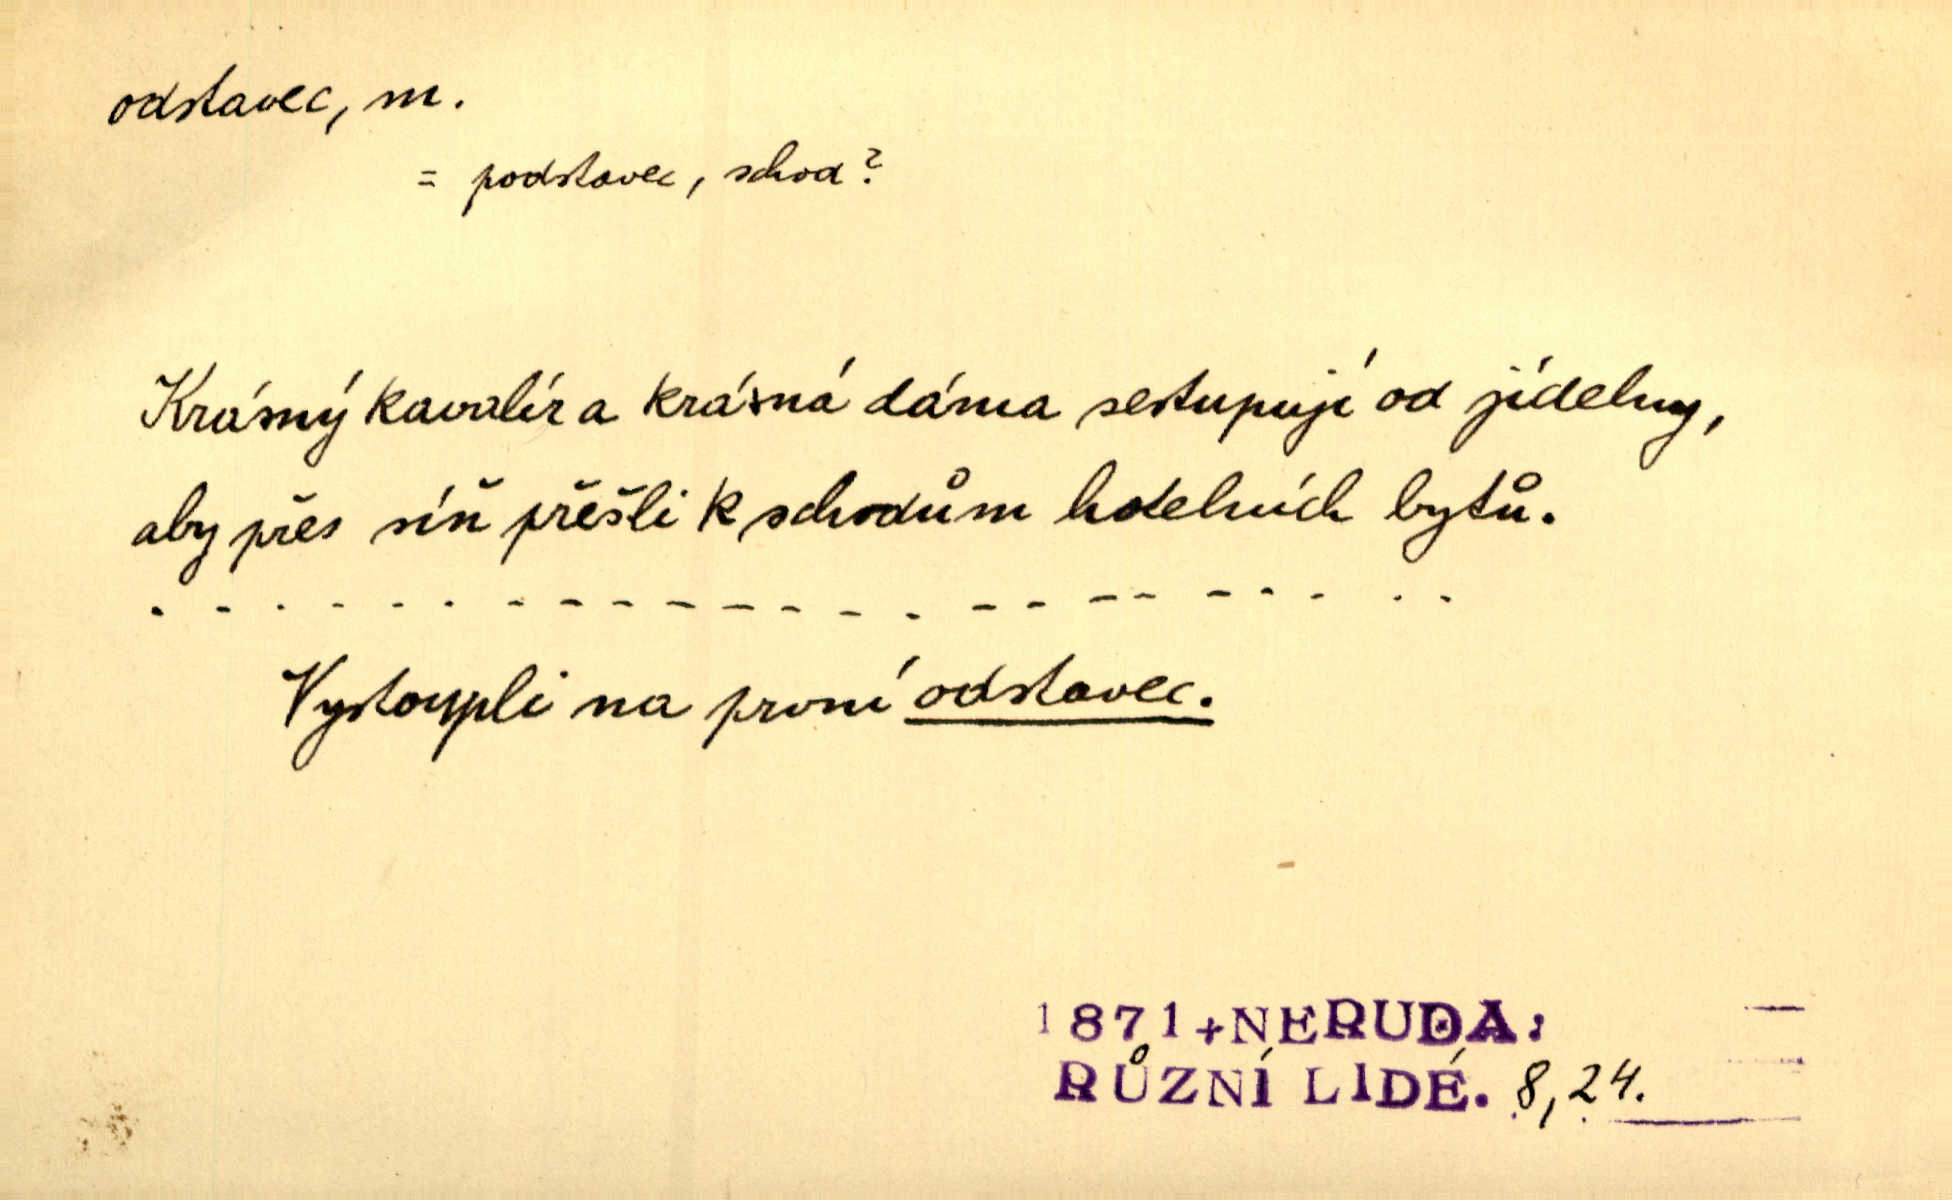 odstavec, m.
= podstavec, schod?
Krásný kavalír a krásná dáma sestupují od jídelny,
aby přes síň přešli k schodům hotelních bytů.
- - - - - - - - - - - - - - - - - - - - - - - -
Vystoupli na první odstavec.
1871+NERUDA:
RŮZNÍ LIDÉ. 8,24.